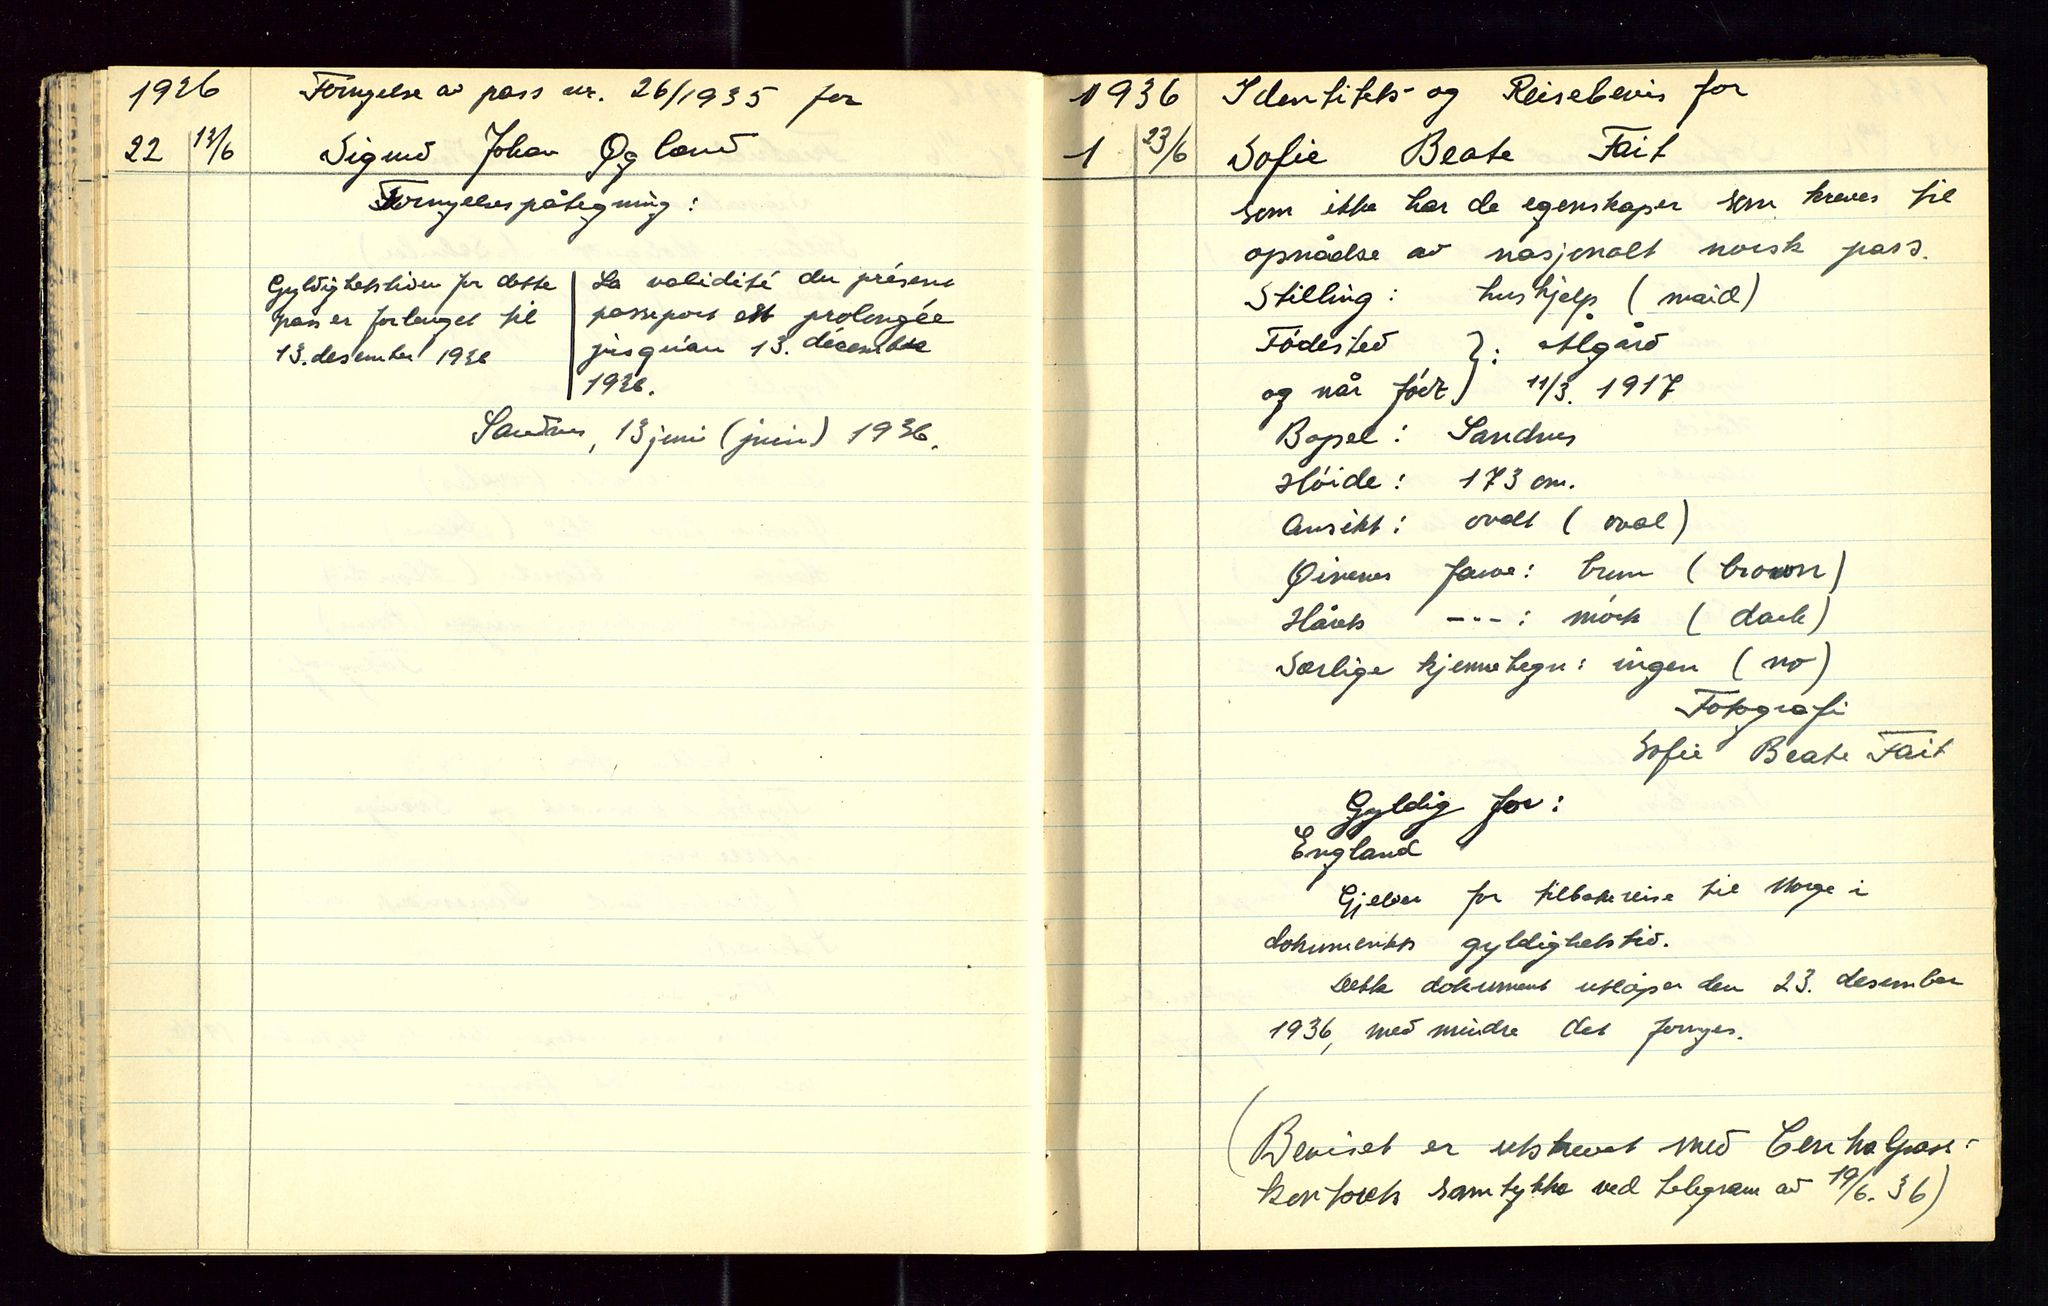 1936 Fornyelse av pass nr. 26/1935 for
22 13/6 Sigurd Johan Ogland
Fornyelsespåtegning:
Gyldighetstiden for dette
pass er forlenget til
13. desember 1936
La validité du présent
passeport est prolongée
jusqu'au 13. décembre
1936.
Sandnes, 13 juni (juin) 1936.
1936 Identitets- og Reisebevis for
1 23/6 Sofie Beate Fait
som ikke har de egenskaper som kreves til
opnådse av nasjonalt norsk pass.
Stilling: hushjelp (maid)
Fødested }: Ålgård
og når født } 11/3. 1917
Bopel: Sandnes
Høide: 173 cm.
Ansikt: ovalt (oval)
Øinenes farve: brun (brown)
Hårets ---: mörk (dark)
Særlige kjennetegn: ingen (no)
Fotografi
Sofie Beate Fait
Gyldig for:
England
Gjelder for tilbakereise til Norge i
dokumentets gyldighetstid.
Dette dokument utløper den 23. desember
1936, med mindre det fornyes.
(Beviset er utskrevet med Centralpass-
kontorets samtykke ved telegram av 19/6. 36)